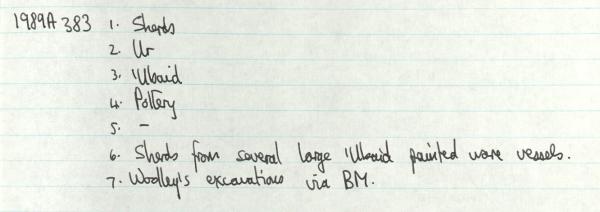 1989A 383 1. Sherds
2. Ur
3. 'Ubaid
4. Pottery
5. –
6. Sherds from several large 'Ubaid painted ware vessels.
7. Woolley's excavations via BM.